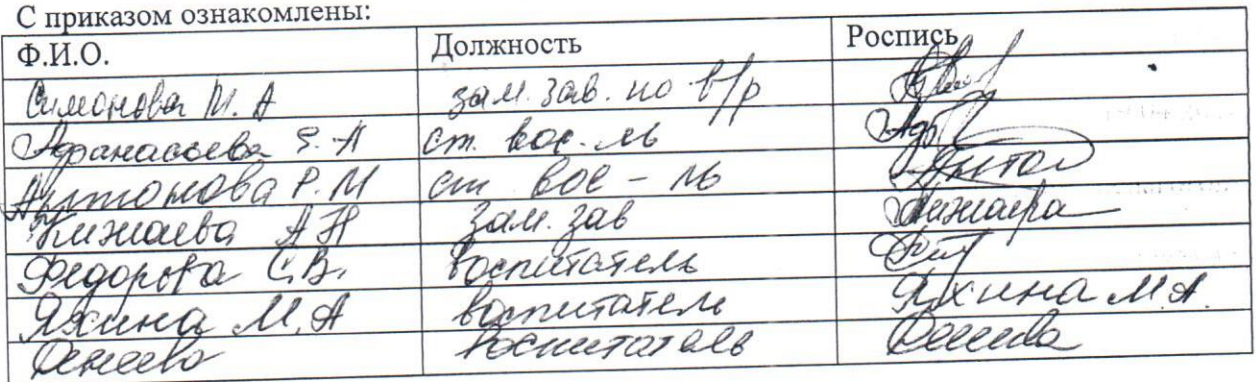 С приказом ознакомлены:
Ф.И.О. Должность Роспись
Симонова М.А зам. зав. по в/р
Афанасьева Е.А ст. вос-ль
Антонова Р.М ст вос-ль Антон
Кинжаева А.Н зам. зав
Федорова С.В. воспитатель
Яхина М.А воспитатель Яхина М.А.
воспитатель